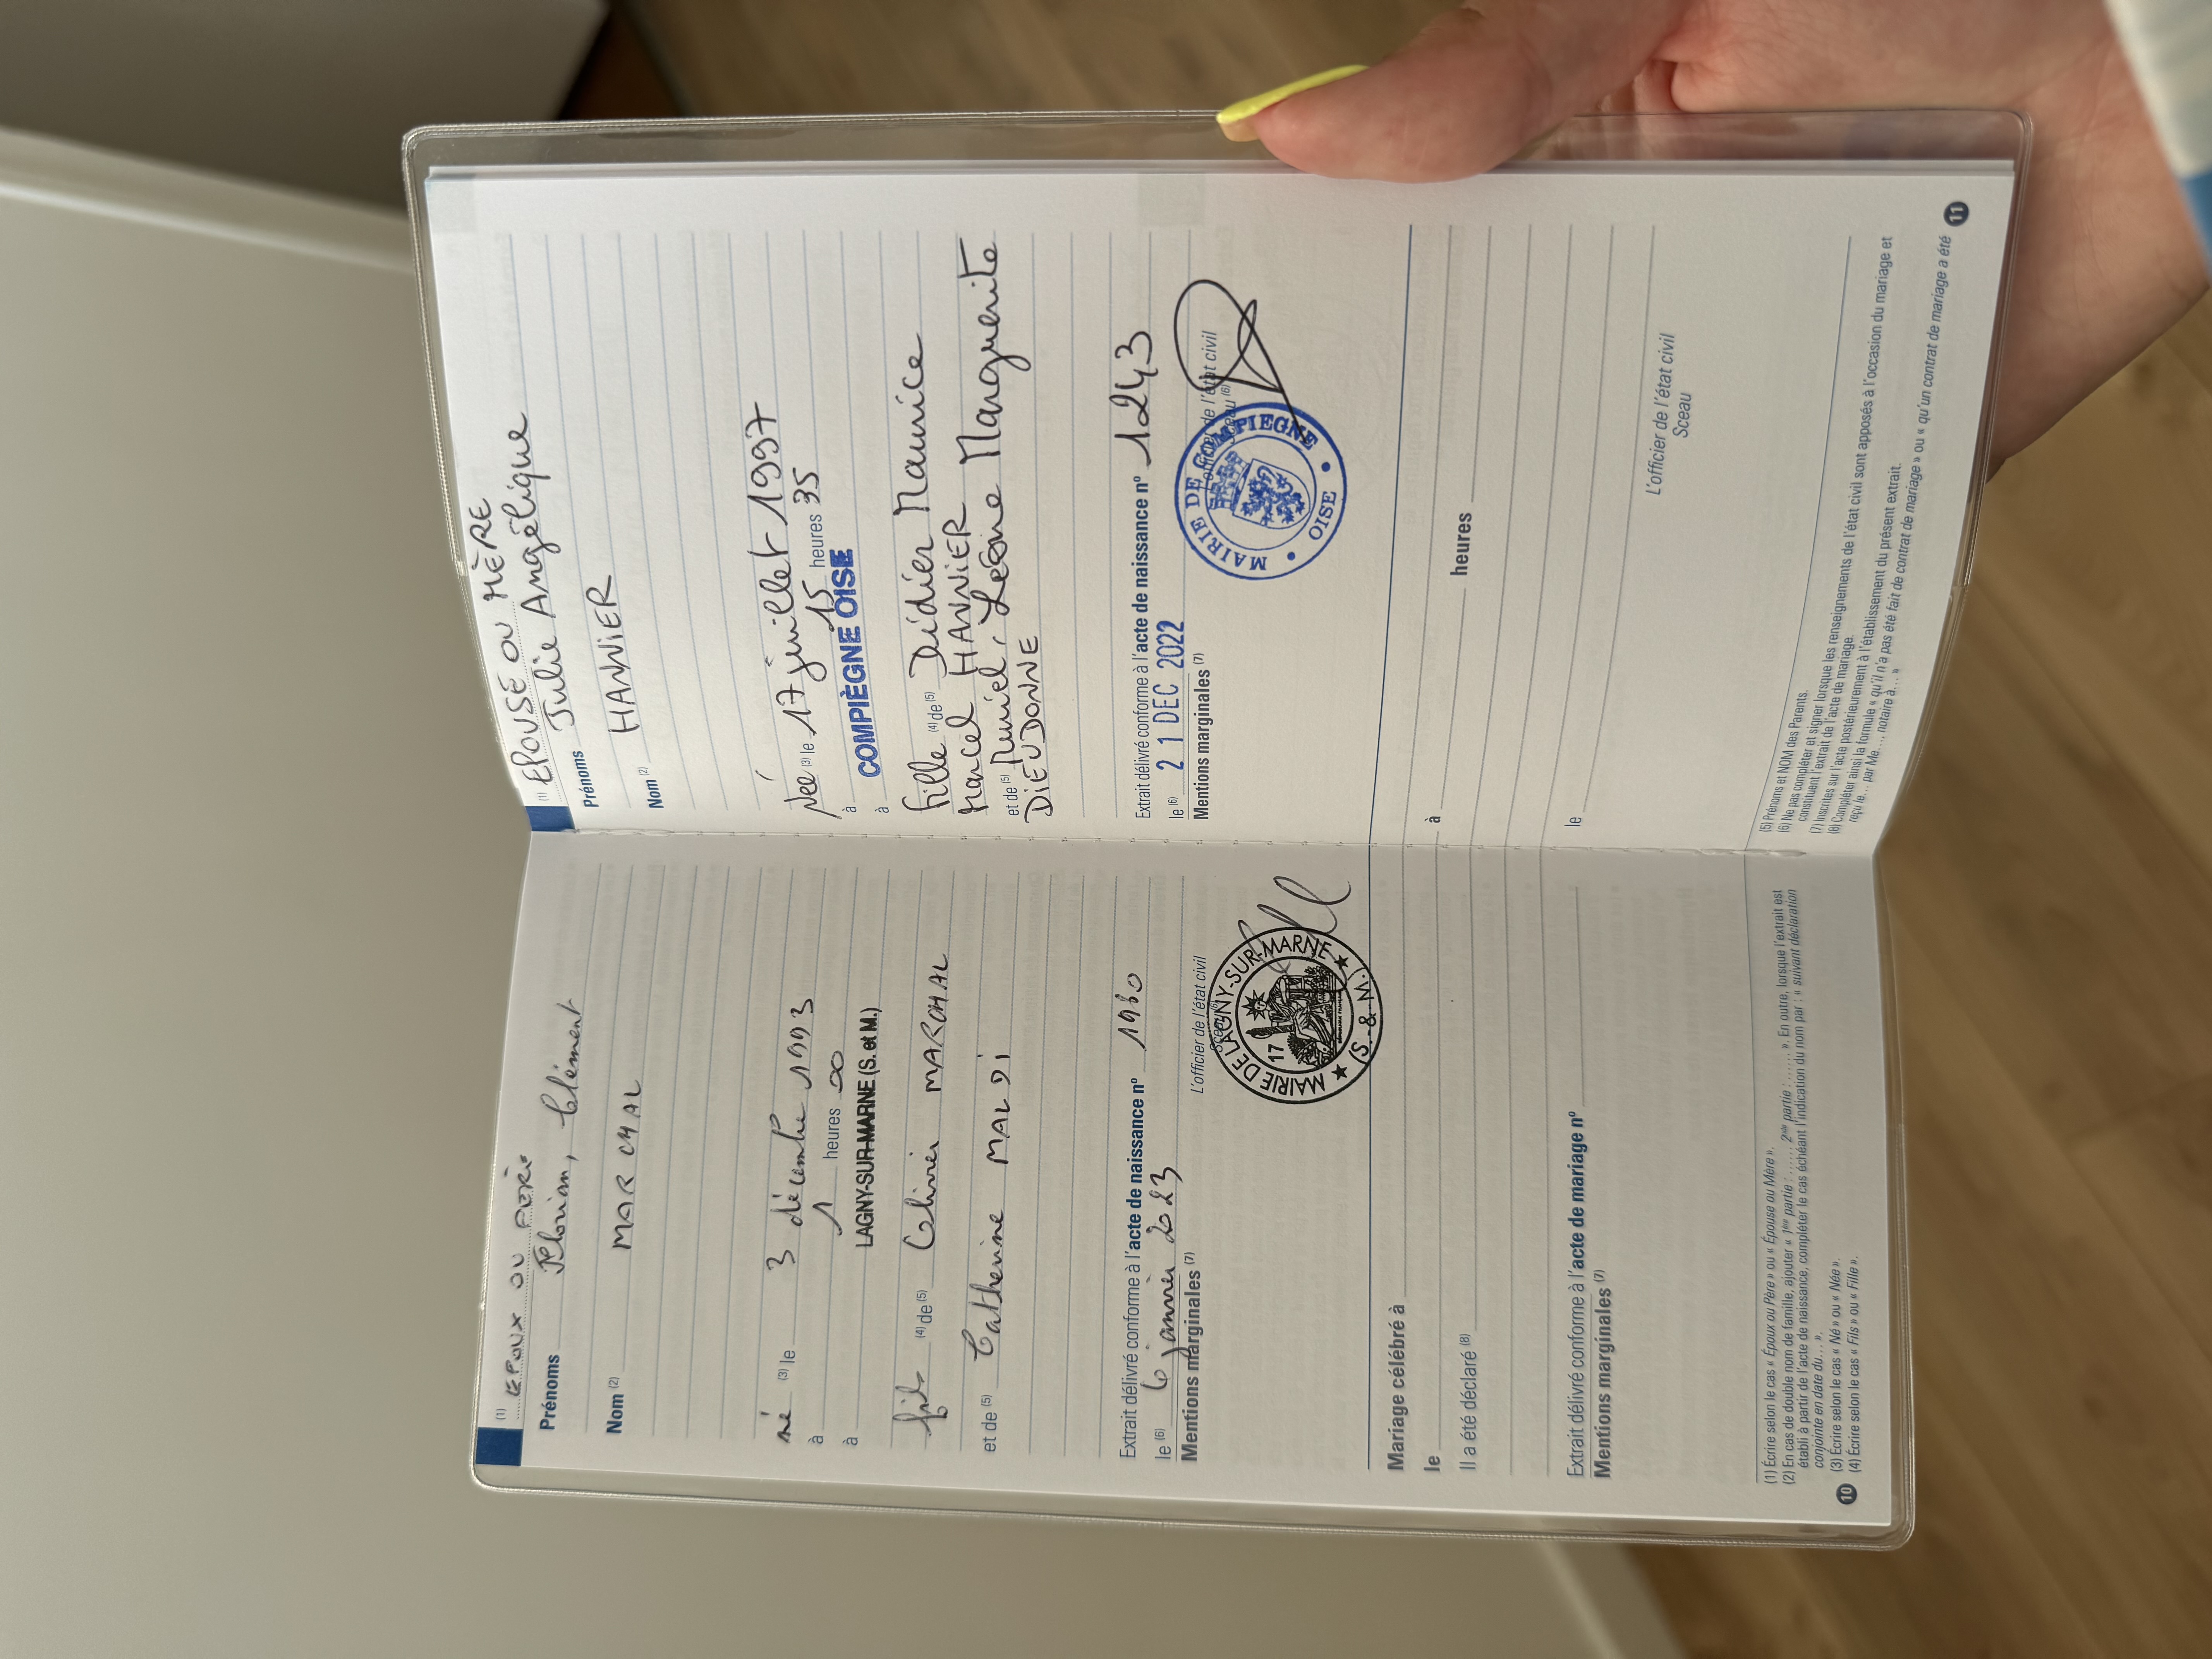 (1) EPOUX OU PÈRE
Prénoms Florian, Clément
Nom (2) MARCHAL
né (3) le 3 décembre 1993
à 1 heures 00
à LAGNY-SUR-MARNE (S. et M.)
fils (4) de (5) Olivier MARCHAL
et de (5) Catherine MALDI
Extrait délivré conforme à l'acte de naissance nº 1930
le (6) 6 janvier 2023
Mentions marginales (7)
L'officier de l'état civil
Sceau (6)
MAIRIE DE LAGNY-SUR-MARNE
17
(S. & M.)
Mariage célébré à
le
Il a été déclaré (8)
Extrait délivré conforme à l'acte de mariage nº
Mentions marginales (7)
(1) Écrire selon le cas « Époux ou Père » ou « Épouse ou Mère ».
(2) En cas de double nom de famille, ajouter « 1ère partie : ...... 2nde partie : ...... ». En outre, lorsque l'extrait est
établi à partir de l'acte de naissance, compléter le cas échéant l'indication du nom par : « suivant déclaration
conjointe en date du... ».
(3) Écrire selon le cas « Né » ou « Née ».
(4) Écrire selon le cas « Fils » ou « Fille ».
10
(1) EPOUSE OU MÈRE
Prénoms Julie Angélique
Nom (2) HANNIER
Née (3) le 17 juillet 1997
à 15 heures 35
à COMPIÈGNE OISE
fille (4) de (5) Didier Maurice
Marcel HANNIER
et de (5) Muriel, Léone Marguerite
DIEUDONNE
Extrait délivré conforme à l'acte de naissance nº 1243
le (6) 21 DEC 2022
Mentions marginales (7)
L'officier de l'état civil
Sceau (6)
MAIRIE DE COMPIEGNE
OISE
à heures
le
L'officier de l'état civil
Sceau
(5) Prénoms et NOM des Parents.
(6) Ne pas compléter et signer lorsque les renseignements de l'état civil sont apposés à l'occasion du mariage et
constituent l'extrait de l'acte de mariage.
(7) Inscrites sur l'acte postérieurement à l'établissement du présent extrait.
(8) Compléter ainsi la formule « qu'il n'a pas été fait de contrat de mariage » ou « qu'un contrat de mariage a été
reçu le... par Me..., notaire à... »
11